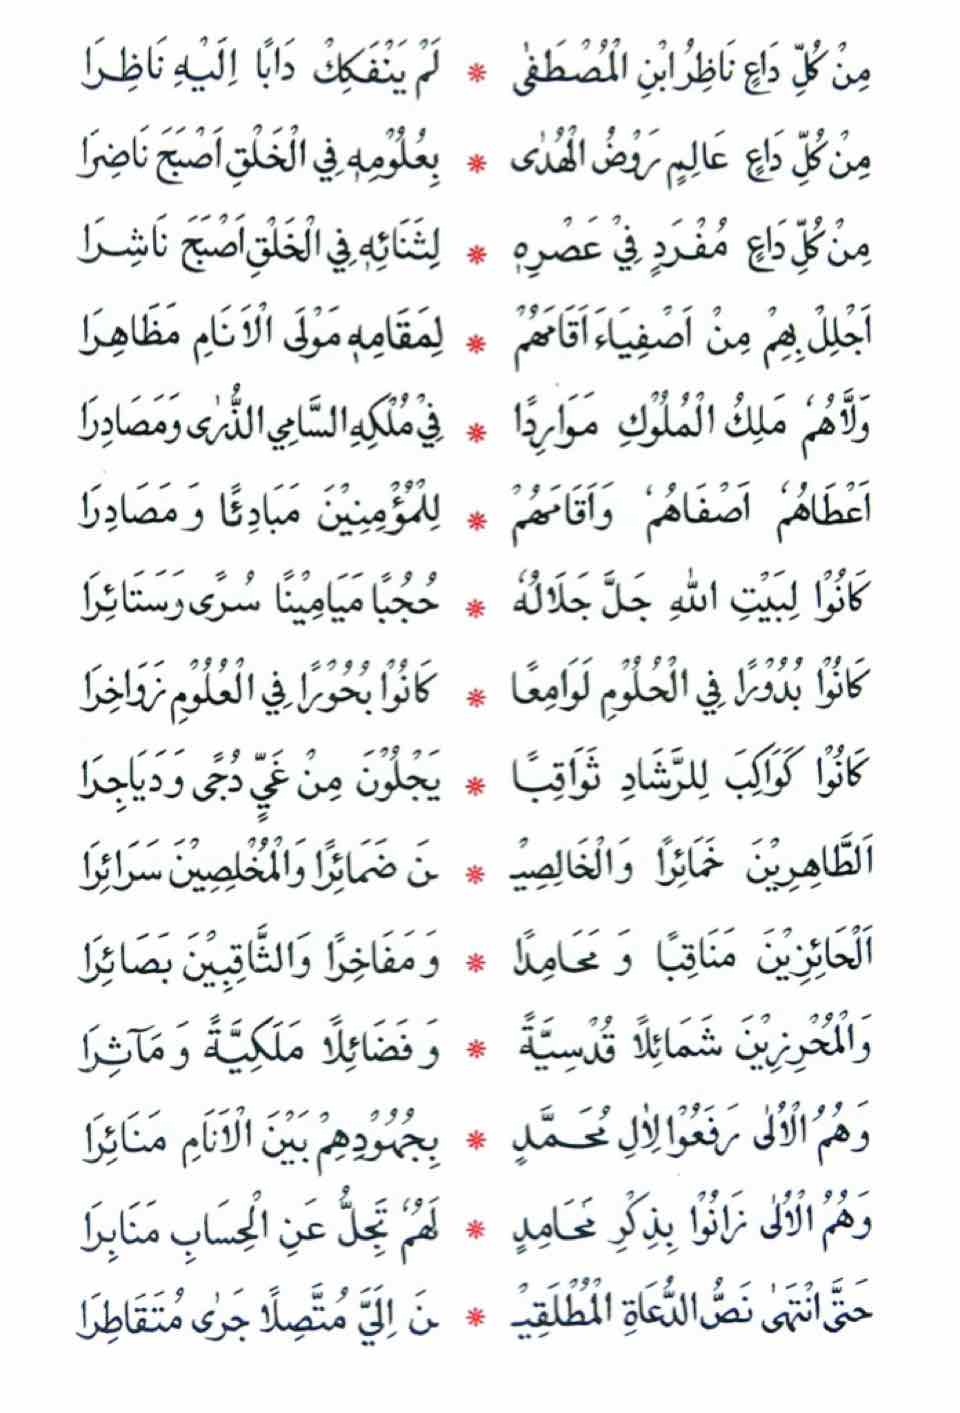 مِنْ كُلِّ دَاعٍ نَاظِرُ ابْنِ الْمُصْطَفٰى * لَمْ يَنْفَكِكْ دَابًا اِلَيْهِ نَاظِرَا
مِنْ كُلِّ دَاعٍ عَالِمٍ رَوْضُ الْهُدٰى * بِعُلُوْمِهٖ فِي الْخَلْقِ اَصْبَحَ نَاضِرَا
مِنْ كُلِّ دَاعٍ مُفْرَدٍ فِيْ عَصْرِهٖ * لِثَنَائِهٖ فِي الْخَلْقِ اَصْبَحَ نَاشِرَا
اَجْلِلْ بِهِمْ مِنْ اَصْفِيَاءَ اَقَامَهُمْ * لِمَقَامِهٖ مَوْلَى الْاَنَامِ مَظَاهِرَا
وَلَّاهُمُ مَلِكُ الْمُلُوْكِ مَوَارِدًا * فِيْ مُلْكِهِ السَّامِي الذُّرٰى وَمَصَادِرَا
اَعْطَاهُمُ اَصْفَاهُمُ وَاَقَامَهُمْ * لِلْمُؤْمِنِيْنَ مَبَادِئًا وَ مَصَادِرَا
كَانُوْا لِبَيْتِ اللهِ جَلَّ جَلَالُهٗ * حُجُبًا مَيَامِيْنًا سُرًى وَسَتَائِرَا
كَانُوْا بُدُوْرًا فِي الْحُلُوْمِ لَوَامِعًا * كَانُوْا بُحُوْرًا فِي الْعُلُوْمِ زَوَاخِرَا
كَانُوْا كَوَاكِبَ لِلرَّشَادِ ثَوَاقِبًا * يَجْلُوْنَ مِنْ غَيٍّ دُجًى وَ دَيَاجِرَا
اَلطَّاهِرِيْنَ خَمَائِرًا وَالْخَالِصِيْـ * ـنَ ضَمَائِرًا وَالْمُخْلِصِيْنَ سَرَائِرَا
اَلْحَائِزِيْنَ مَنَاقِبًا وَ مَحَامِدًا * وَ مَفَاخِرًا وَالثَّاقِبِيْنَ بَصَائِرَا
وَالْمُحْرِزِيْنَ شَمَائِلًا قُدْسِيَّةً * وَ فَضَائِلًا مَلَكِيَّةً وَ مَآثِرَا
وَهُمُ الْاُلٰى رَفَعُوْا لِاٰلِ مُحَمَّدٍ * بِجُهُوْدِهِمْ بَيْنَ الْاَنَامِ مَنَائِرَا
وَهُمُ الْاُلٰى زَانُوْا بِذِكْرِ مَحَامِدٍ * لَهُمُ تَجِلُّ عَنِ الْحِسَابِ مَنَابِرَا
حَتَّى انْتَهٰى نَصُّ الدُّعَاةِ الْمُطْلَقِيْـ * ـنَ اِلَيَّ مُتَّصِلًا جَرٰى مُتَقَاطِرَا